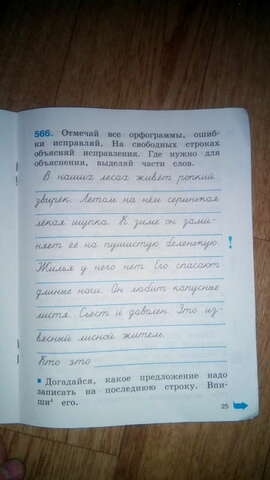 566. Отмечай все орфограммы, ошиб-
ки исправляй. На свободных строках
объясняй исправления. Где нужно для
объяснения, выделяй части слов.
В наших лесах живёт ропкий
звырёк. Летом на нём серинькая
лёкая шупка. К зиме он заmi-
няет её на пушистую беленькую.
!
Жилья у него нет. Его спасают
длиные ноги. Он любит капусные
листя. Съест и даволен. Это из-
весный лисной житель.
Кто это
Догадайся, какое предложение надо
записать на последнюю строку. Впи-
ши его.
25